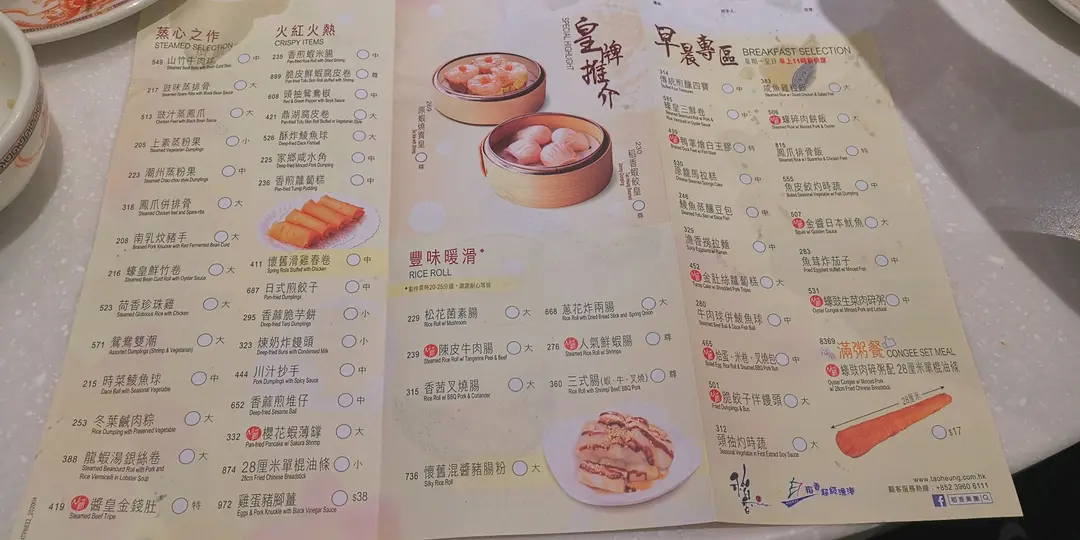 蒸心之作
STEAMED SELECTION
549 山竹牛肉球 中
Steamed Beef Balls with Bean Curd Skin
217 豉味蒸排骨 大
Steamed Spare Ribs with Black Bean Sauce
513 豉汁蒸鳳爪 大
Chicken Feet with Black Bean Sauce
205 上素蒸粉果 小
Steamed Vegetarian Dumplings
223 潮州蒸粉果 中
Steamed Chao chou style Dumplings
318 鳳爪併排骨 大
Steamed Chicken feet and Spare-ribs
208 南乳炆豬手 大
Braised Pork Knuckle with Red Fermented Bean Curd
216 蠔皇鮮竹卷 大
Steamed Bean Curd Roll with Oyster Sauce
523 荷香珍珠雞 大
Steamed Glutinous Rice with Chicken
571 鴛鴦雙潮 大
Assorted Dumplings (Shrimp & Vegetarian)
215 時菜鯪魚球 中
Dace Ball with Seasonal Vegetable
253 冬葉鹹肉粽 大
Rice Dumpling with Preserved Vegetable
388 龍蝦湯銀絲卷 大
Steamed Beancurd Roll with Pork and
Rice Vermicelli in Lobster Soup
419 醬皇金錢肚 特
Steamed Beef Tripe
火紅火熱
CRISPY ITEMS
235 香煎蝦米腸 中
Pan-fried Rice Roll with Dried Shrimp
899 脆皮鮮蝦腐皮卷 特
Pan-fried Tofu Skin Roll stuffed with Shrimp
608 頭抽鴛鴦椒 中
Red & Green Pepper with Soya Sauce
421 鼎湖腐皮卷 大
Pan-fried Tofu Skin Roll Stuffed in Vegetarian Style
526 酥炸鯪魚球 中
Deep-fried Dace Fishball
225 家鄉咸水角 中
Deep-fried Minced Pork Dumpling
236 香煎蘿蔔糕 中
Pan-fried Turnip Pudding
411 懷舊滑雞春卷 中
Spring Rolls Stuffed with Chicken
687 日式煎餃子 中
Pan-fried Dumplings
295 香蔴脆芋餅 小
Deep-fried Taro Dumplings
323 煉奶炸饅頭 小
Deep-fried Buns with Condensed Milk
444 川汁抄手 大
Pork Dumplings with Spicy Sauce
652 香蔴煎堆仔 中
Deep-fried Sesame Ball
332 櫻花蝦薄罉 大
Pan-fried Pancake w/ Sakura Shrimp
874 28厘米單棍油條 小
28cm Fried Chinese Breadstick
972 雞蛋豬腳薑 $38
Eggs & Pork Knuckle with Black Vinegar Sauce
皇牌推介
SPECIAL HIGHLIGHT
原蝦燒賣皇 尊
230 稻香蝦餃皇 尊
豐味暖滑
RICE ROLL
229 松花菌素腸 大
Rice Roll w/ Mushroom
239 陳皮牛肉腸 大
Steamed Rice Roll w/ Tangerine Peel & Beef
315 香茜叉燒腸 大
Rice Roll w/ BBQ Pork & Coriander
736 懷舊混醬豬腸粉 大
Silky Rice Roll
668 蔥花炸兩腸 大
Rice Roll with Dried Bread Stick and Spring Onion
276 人氣鮮蝦腸 尊
Steamed Rice Roll w/ Shrimps
360 三式腸(蝦·牛·叉燒) 尊
Rice Roll with Shrimp/ Beef/ BBQ Pork
早晨專區
BREAKFAST SELECTION
314 傳統煎釀四寶 中
585 蠔皇三鮮卷 中
439 鴨掌燴白玉膠 特
530 原籠馬拉糕 中
Steamed Chinese Sponge Cake
246 鯪魚蒸釀豆包 中
329 漁香撈拉麵 中
452 金肚絲蘿蔔糕 大
280 牛肉球併鯪魚球 中
465 燴蛋·米卷·叉燒包 中
501 脆餃子伴饅頭 大
Fried Dumplings & Bun
312 頭抽灼時蔬 大
Seasonal Vegetable in First Extract Soy Sauce
383
506 蠔碎肉餅飯 中
816 鳳爪排骨飯 特
555 魚皮餃灼時蔬 中
507 金醬日本魷魚 大
Squid w/ Golden Sauce
283 魚茸炸茄子 中
531 蠔豉生菜肉碎粥 中
滿粥餐 CONGEE SET MEAL
8369 蠔豉肉碎粥配 28厘米單棍油條
Oyster Congee w/ Minced Pork
w/ 28cm Fried Chinese Breadstick
28厘米
$17
www.taoheung.com.hk
顧客服務熱線：+852 3960 6111
稻香集團